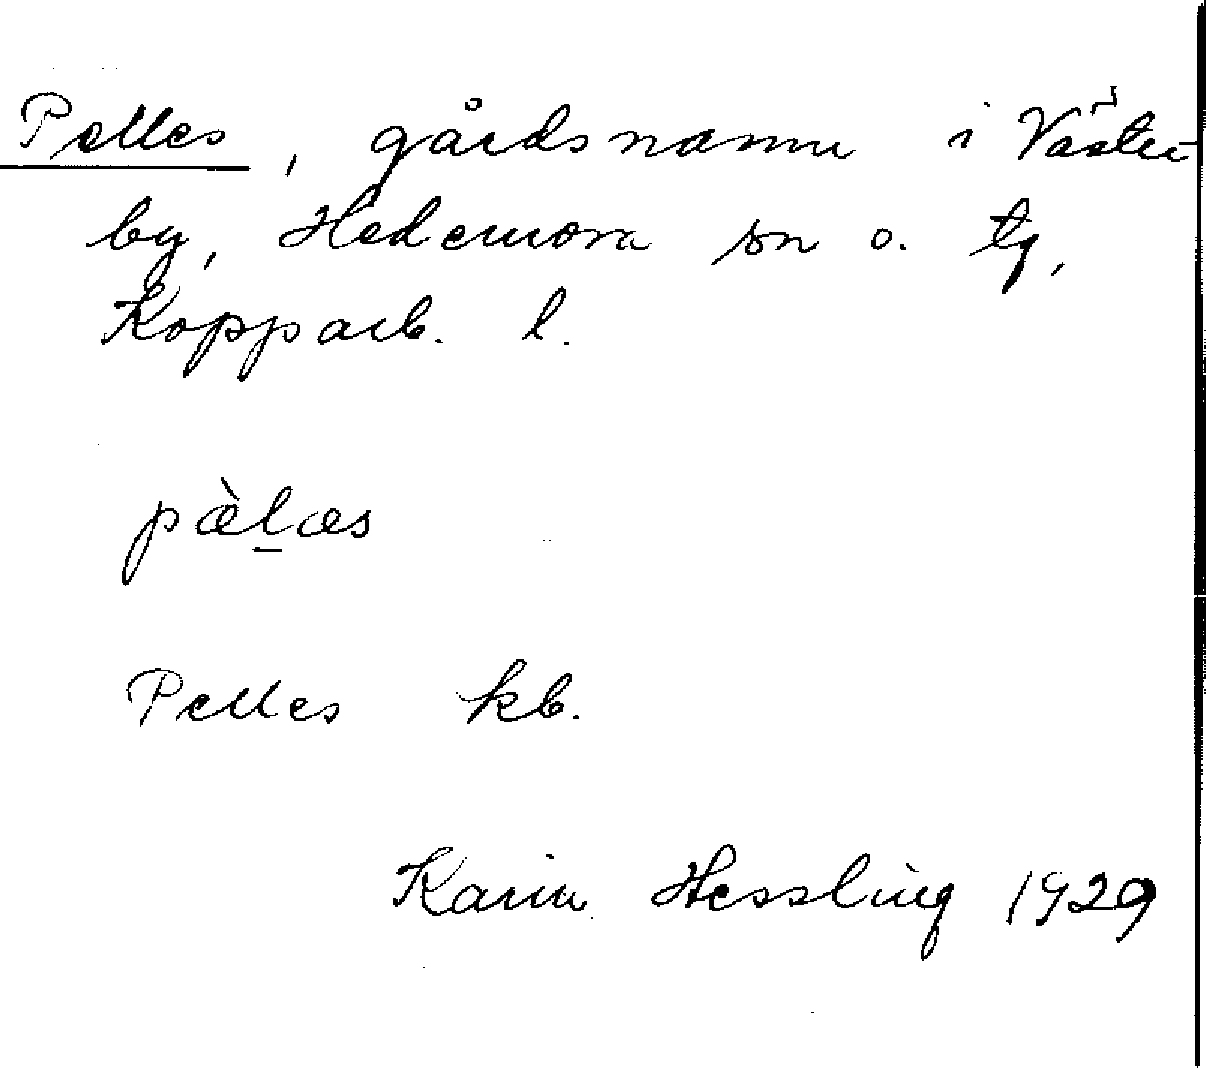 Pelles, gårdsnamn i Väster-
by, Hedemora sn o. tg,
Kopparb. l.
pæ̀l̠æs
Pelles kb.
Karin Hessling 1929